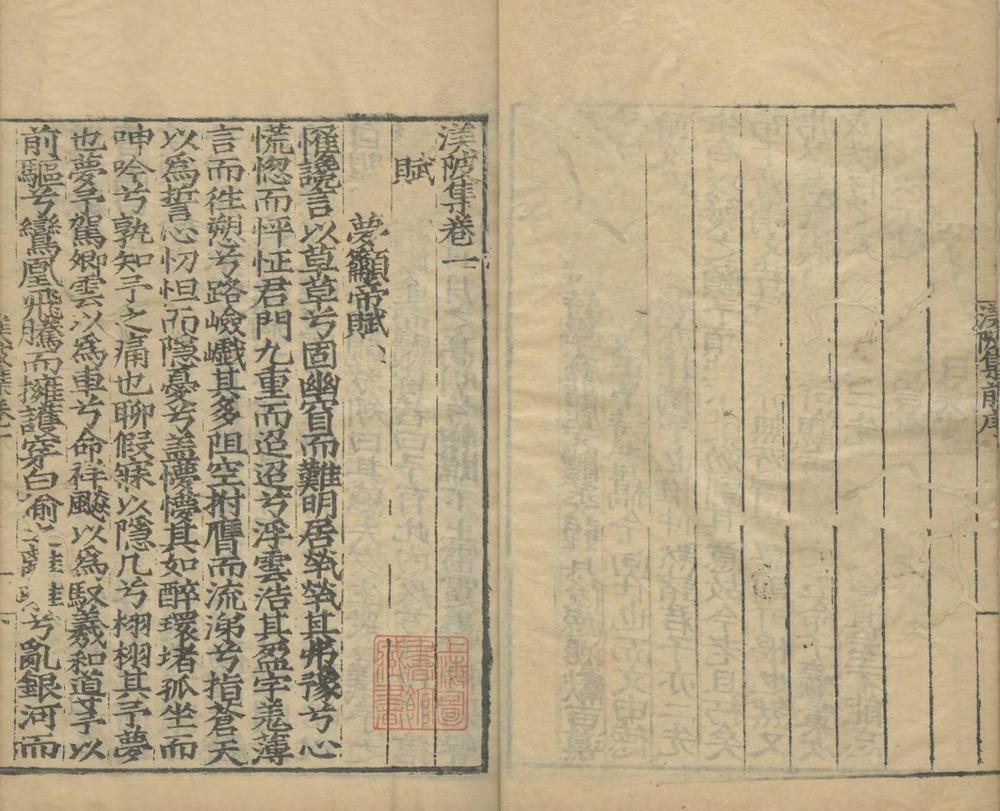 渼陂集前序
渼陂集卷一
賦
夢籲帝賦
罹讒言以草草兮固幽窅而難明居煢煢其弗豫兮心
慌惚而怦怔君門九重而迢迢兮浮雲浩其盈宇羌薄
言而徃愬兮路嶮巇其多阻空拊膺而流涕兮指蒼天
以爲誓心忉怛而隱憂兮盖懮懮其如醉環堵孤坐而
呻吟兮孰知予之痛也聊假寐以隱几兮栩栩其予夢
也夢予駕卿雲以爲車兮命祥飈以爲馭羲和道予以
前驅兮鸞凰飛騰而擁護穿白榆之離離兮亂銀河而
上海圖
書館
藏書